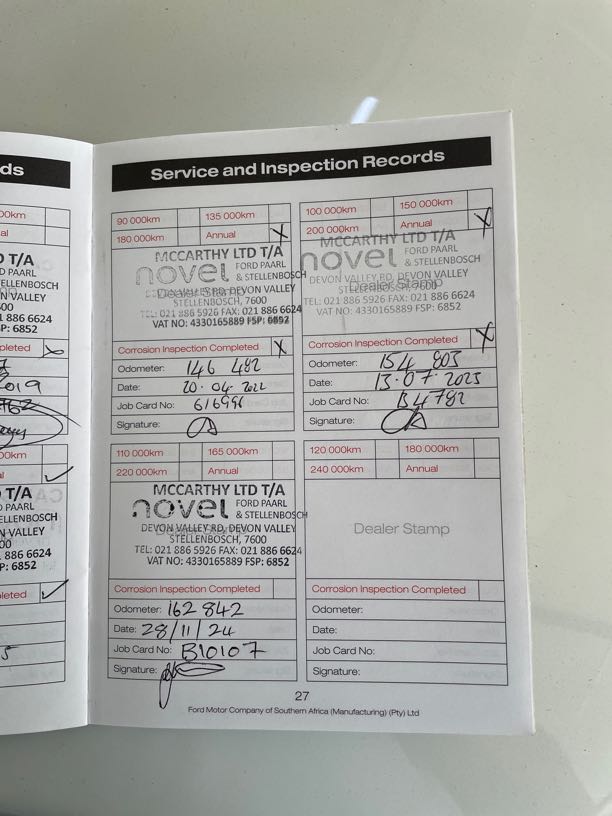 ds
Service and Inspection Records
0km
al
T/A
D PAARL
ELLENBOSCH
N VALLEY
600
1 886 6624
SP: 6852
pleted
2019
90 000km 135 000km
180 000km Annual X
MCCARTHY LTD T/A
novel FORD PAARL
& STELLENBOSCH
Dealer Stamp
DEVON VALLEY RD, DEVON VALLEY
STELLENBOSCH, 7600
TEL: 021 886 5926 FAX: 021 886 6624
VAT NO: 4330165889 FSP: 6852
Corrosion Inspection Completed X
Odometer: 146 482
Date: 20·04·2022
Job Card No: 616996
Signature:
100 000km 150 000km
200 000km Annual X
MCCARTHY LTD T/A
novel FORD PAARL
& STELLENBOSCH
DEVON VALLEY RD, DEVON VALLEY
Dealer Stamp
STELLENBOSCH, 7600
TEL: 021 886 5926 FAX: 021 886 6624
VAT NO: 4330165889 FSP: 6852
Corrosion Inspection Completed X
Odometer: 154 803
Date: 13·07·2023
Job Card No: B4782
Signature:
110 000km 165 000km
220 000km Annual
MCCARTHY LTD T/A
novel FORD PAARL
& STELLENBOSCH
DEVON VALLEY RD, DEVON VALLEY
STELLENBOSCH, 7600
TEL: 021 886 5926 FAX: 021 886 6624
VAT NO: 4330165889 FSP: 6852
Corrosion Inspection Completed
Odometer: 162 842
Date: 28/11/24
Job Card No: B10107
Signature:
120 000km 180 000km
240 000km Annual
Dealer Stamp
Corrosion Inspection Completed
Odometer:
Date:
Job Card No:
Signature:
27
Ford Motor Company of Southern Africa (Manufacturing) (Pty) Ltd